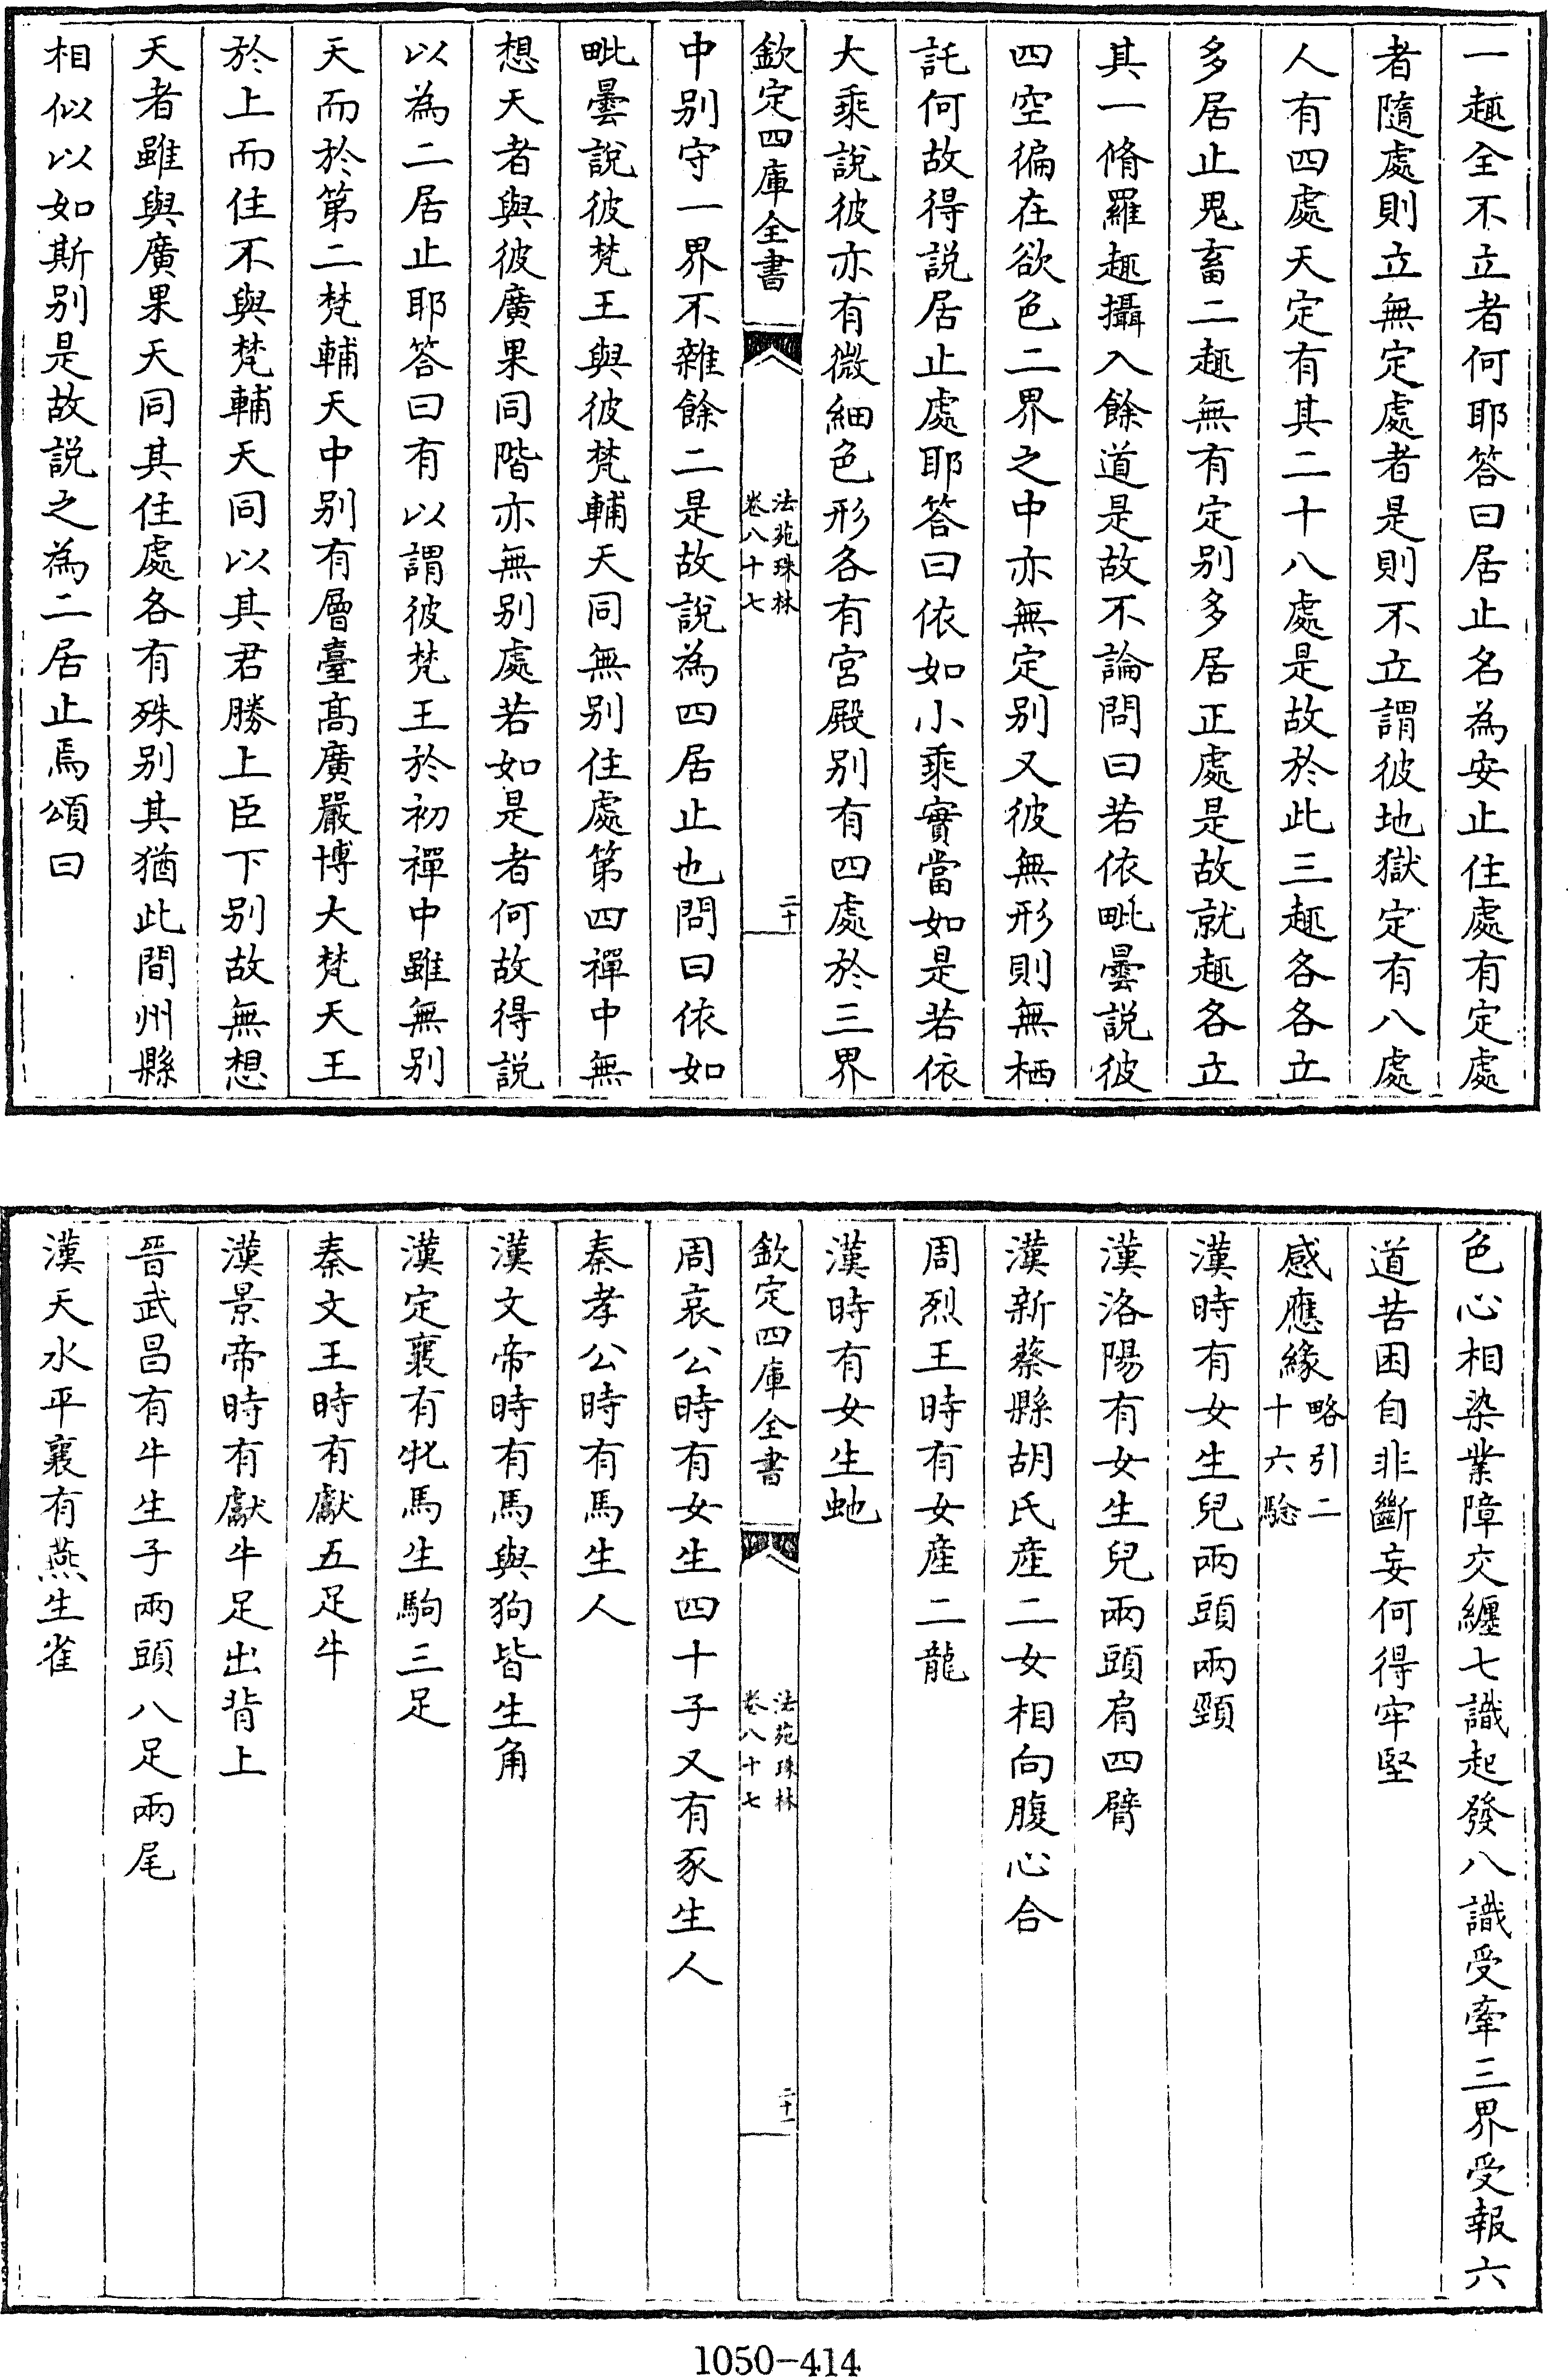 一趣全不立者何耶答曰居止名為安止住處有定處
者隨處則立無定處者是則不立謂彼地獄定有八處
人有四處天定有其二十八處是故於此三趣各各立
多居止鬼畜二趣無有定别多居正處是故就趣各立
其一脩羅趣攝入餘道是故不論問曰若依毗曇説彼
四空徧在欲色二界之中亦無定别又彼無形則無栖
託何故得説居止處耶答曰依如小乘實當如是若依
大乘説彼亦有微細色形各有宮殿别有四處於三界
欽定四庫全書
法苑珠林
卷八十七
二十
中别守一界不雜餘二是故說為四居止也問曰依如
毗曇說彼梵王與彼梵輔天同無别住處第四禪中無
想天者與彼廣果同階亦無别處若如是者何故得説
以為二居止耶答曰有以謂彼梵王於初禪中雖無别
天而於第二梵輔天中别有層臺髙廣嚴博大梵天王
於上而住不與梵輔天同以其君勝上臣下别故無想
天者雖與廣果天同其住處各有殊别其猶此間州縣
相似以如斯别是故説之為二居止焉頌曰
色心相染業障交纏七識起發八識受牽三界受報六
道苦困自非斷妄何得牢堅
感應緣略引二
十六驗
漢時有女生兒兩頭兩頸
漢洛陽有女生兒兩頭肩四臂
漢新蔡縣胡氏産二女相向腹心合
周烈王時有女産二龍
漢時有女生虵
欽定四庫全書
法苑珠林
卷八十七
二十一
周哀公時有女生四十子又有豕生人
秦孝公時有馬生人
漢文帝時有馬與狗皆生角
漢定襄有牝馬生駒三足
秦文王時有獻五足牛
漢景帝時有獻牛足出背上
晉武昌有牛生子兩頭八足兩尾
漢天水平襄有燕生雀
1050-414